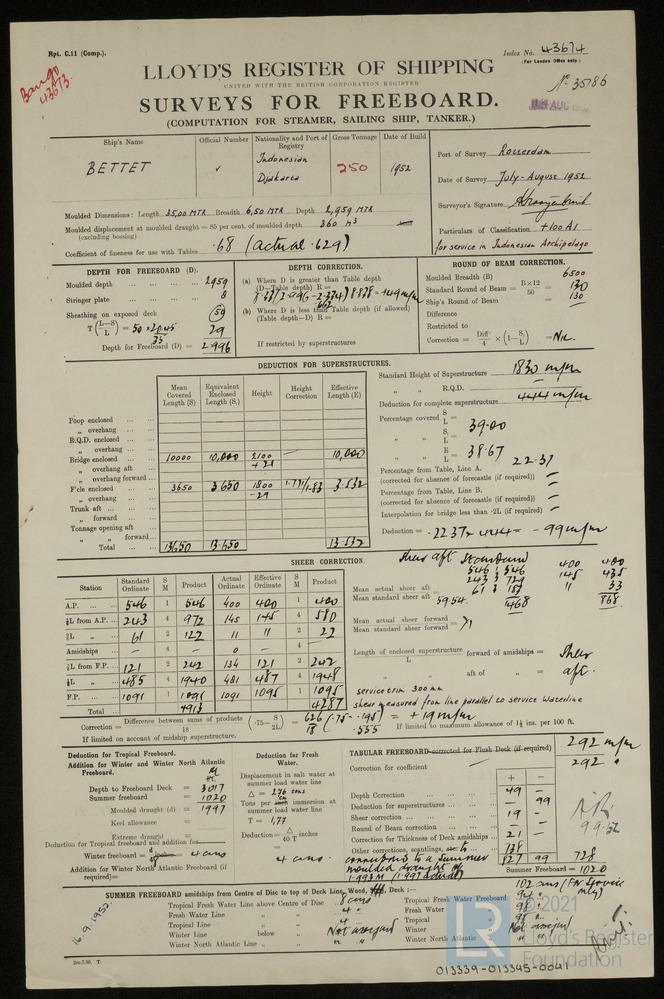 Rpt. C.11 (Comp.).
Index No. 43674
(For London Office only.)
Bango
43673.
No 35786
LLOYD'S REGISTER OF SHIPPING
UNITED WITH THE BRITISH CORPORATION REGISTER
SURVEYS FOR FREEBOARD.
(COMPUTATION FOR STEAMER, SAILING SHIP, TANKER.)
Ship's Name Official Number Nationality and Port of Registry Gross Tonnage Date of Build
BETTET Indonesian Djakarta 250 1952
Port of Survey Rotterdam
Date of Survey July-August 1952
Surveyor's Signature
Particulars of Classification +100 A1
for service in Indonesian Archipelago
Moulded Dimensions: Length 35,00 MTR Breadth 6,50 MTR Depth 2,959 MTR
Moulded displacement at moulded draught = 85 per cent. of moulded depth 360 M3
(excluding bossing)
Coefficient of fineness for use with Tables .68 (actual .629)
DEPTH FOR FREEBOARD (D).
Moulded depth 2959
Stringer plate 8
Sheathing on exposed deck 50
T (L-S / L) = 50 × 20.45 / 35 29
Depth for Freeboard (D) = 2996
DEPTH CORRECTION.
(a) Where D is greater than Table depth
(D-Table depth) R =
(b) Where D is less than Table depth (if allowed)
(Table depth-D) R =
If restricted by superstructures
ROUND OF BEAM CORRECTION.
Moulded Breadth (B) 6500
Standard Round of Beam = B×12 / 50 = 130
Ship's Round of Beam = 130
Difference
Restricted to
Correction = Diff / 4 × (1 - S1 / L) = Nil.
DEDUCTION FOR SUPERSTRUCTURES.
Mean Covered Length (S) Equivalent Enclosed Length (S1) Height Height Correction Effective Length (E)
Poop enclosed
„ overhang
R.Q.D. enclosed
„ overhang
Bridge enclosed 10000 10,000 2100 +21 10,000
„ overhang aft
„ overhang forward
F'cle enclosed 3650 3650 1800 -29 1.771/1.83 3.532
„ overhang
Trunk aft
„ forward
Tonnage opening aft
„ „ forward
Total 13650 13650 13.532
Standard Height of Superstructure 1830 m/m
„ „ R.Q.D.
Deduction for complete superstructure 444 m/m
Percentage covered S / L =
„ „ S1 / L = 39.00
„ „ E / L = 38.67
Percentage from Table, Line A. 22.37
(corrected for absence of forecastle (if required))
Percentage from Table, Line B.
(corrected for absence of forecastle (if required))
Interpolation for bridge less than .2L (if required)
Deduction = .2237 × 444 = -99 m/m
SHEER CORRECTION.
Station Standard Ordinate S M Product Actual Ordinate Effective Ordinate S M Product
A.P. 546 1 546 400 400 1 400
⅙L from A.P. 243 4 972 145 145 4 580
⅓L „ 61 2 122 11 11 2 22
Amidships - 4 - 0 - 4 -
⅓L from F.P. 121 2 242 134 121 2 242
⅙L „ 485 4 1940 481 487 4 1948
F.P. 1091 1 1091 1091 1095 1 1095
Total 4913 4287
Sheer aft Standard
546 1 546
243 3 729
61 3 183
1468
400 400
145 435
11 33
868
Mean actual sheer aft
Mean standard sheer aft = 59.54.
Mean actual sheer forward
Mean standard sheer forward = >1
Length of enclosed superstructure forward of amidships = Sheer
L
„ „ aft of „ = aft.
service trim 300 mm
sheer measured from line parallel to service waterline
Correction = Difference between sums of products / 18 (.75 - S / 2L) = 626 / 18 (.75 - .195) = +19 m/m
.555
If limited on account of midship superstructure.
If limited to maximum allowance of 1½ ins. per 100 ft.
Deduction for Tropical Freeboard.
Addition for Winter and Winter North Atlantic Freeboard.
Depth to Freeboard Deck = 3017
Summer freeboard = 1020
Moulded draught (d) = 1997
Keel allowance =
Extreme draught =
Deduction for Tropical freeboard and addition for
Winter freeboard = 4 cms
Addition for Winter North Atlantic Freeboard (if required)=
Deduction for Fresh Water.
Displacement in salt water at summer load water line
Δ = 276 tons
Tons per cm immersion at summer load water line
T = 1,77
Deduction = Δ / 40 T inches
= 4 cms.
TABULAR FREEBOARD corrected for Flush Deck (if required) 292 m/m
Correction for coefficient 292 „
+ -
Depth Correction 49 -
Deduction for superstructures - 99
Sheer correction 19 -
Round of Beam correction - -
Correction for Thickness of Deck amidships 21 -
Other corrections, scantlings, etc. 738
corresponding to a Summer moulded draught of 1.993 M (1.997 actual) 827 99 728
Summer Freeboard = 1020
9.9.52
SUMMER FREEBOARD amidships from Centre of Disc to top of Deck Line, Wood, Deck :—
102 cms (FN Service only)
Tropical Fresh Water Line above Centre of Disc 8 cms
Fresh Water Line „ „ 4 „
Tropical Line „ „ 4 „
Winter Line below „ Not assigned
Winter North Atlantic Line „ „ „ „
Tropical Fresh Water Freeboard 94 „
Fresh Water „ 98 „
Tropical „ 98 „
Winter „ Not assigned
Winter North Atlantic „ „ „
16.9.1952
2m.7.50. T.
© 2021
LR
Lloyd's Register
Foundation
013339-013345-0041